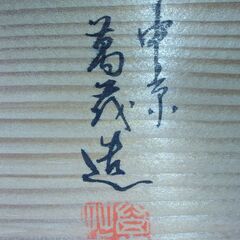 中京
萬茂造